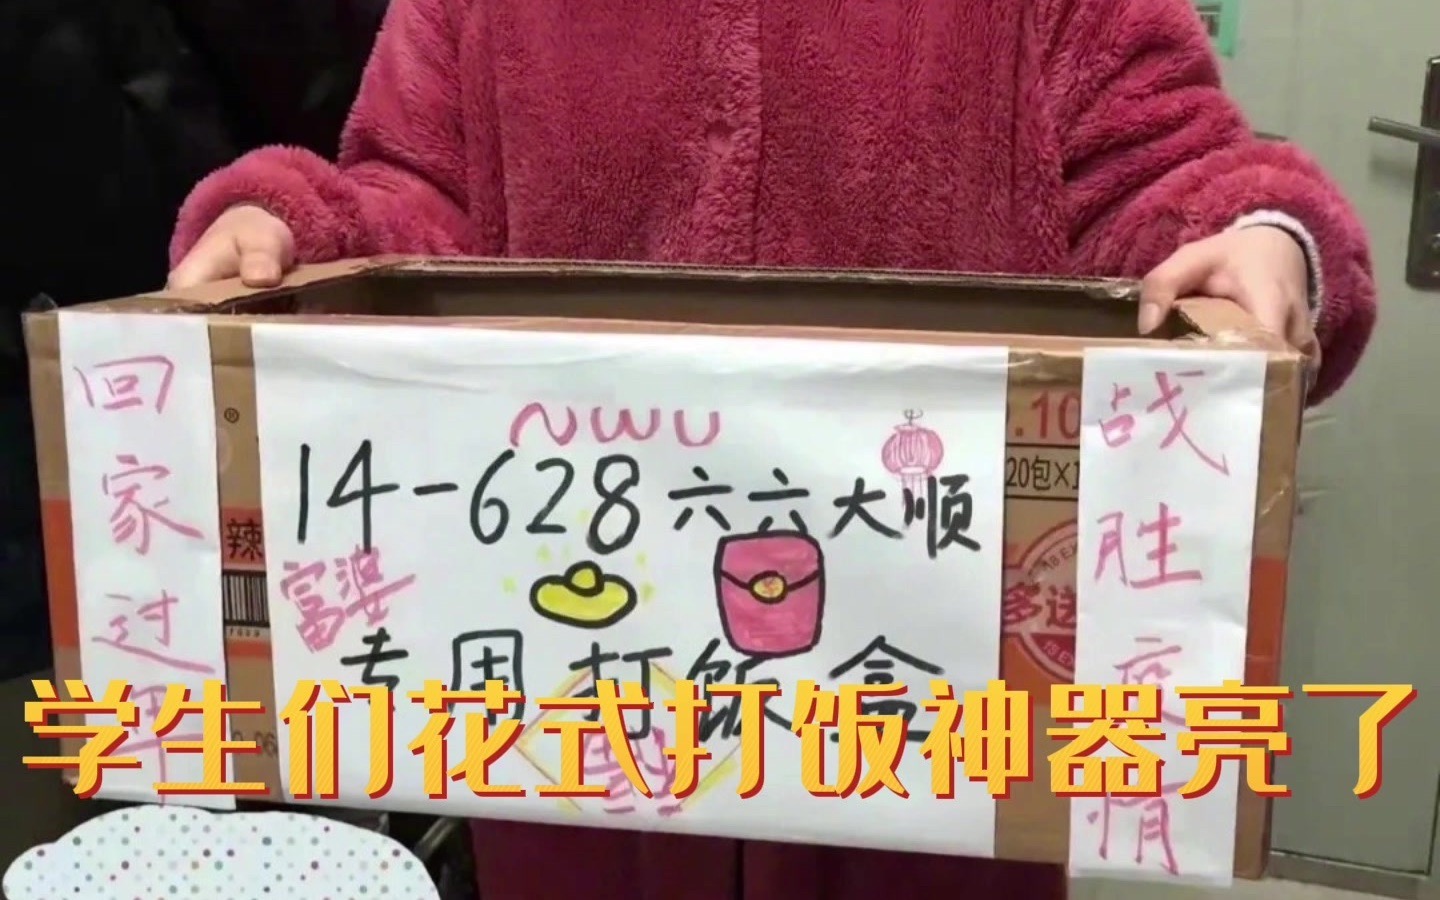 回家过年
NWU
14-628六六大顺
富婆
专用打饭盒
战胜疫情
辣
.10
20包×1
多送
学生们花式打饭神器亮了